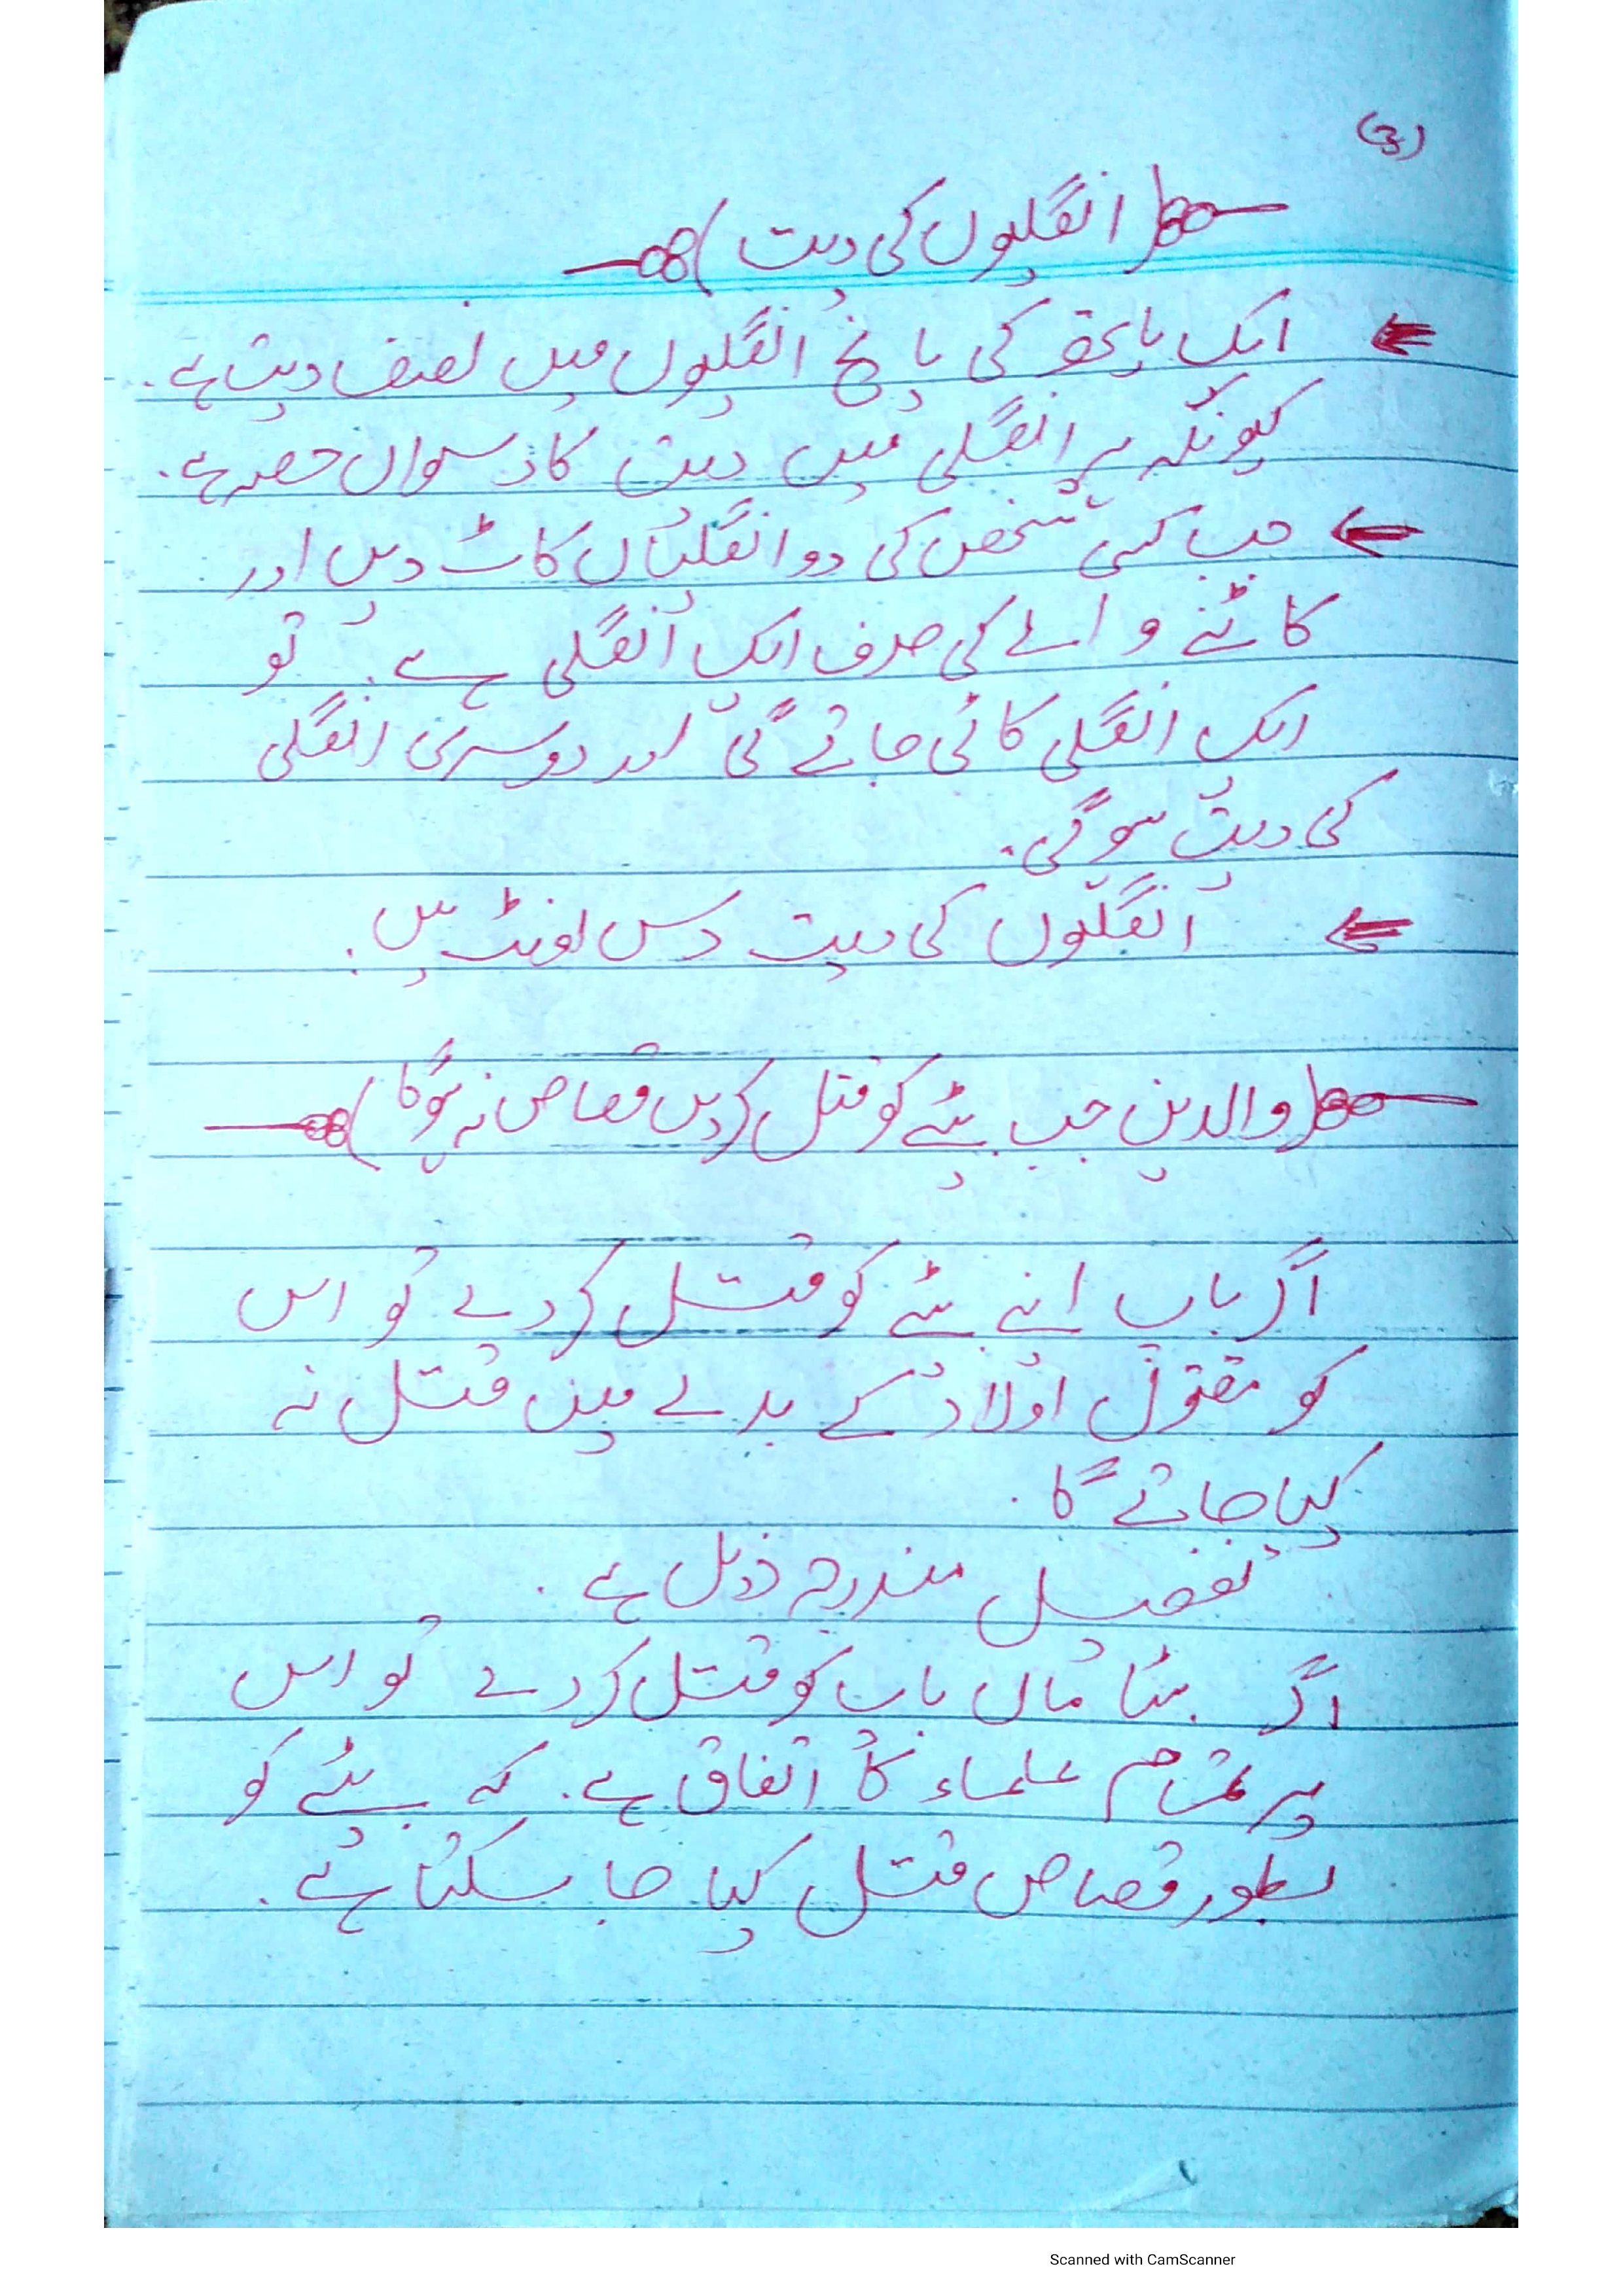 (3)
(انگلیوں کی دیت)
ایک ہاتھ کی پانچ انگلیوں میں نصف دیت ہے۔
کیونکہ ہر انگلی میں دیت کا دسواں حصہ ہے۔
جب کسی شخص کی دو انگلیاں کاٹ دیں اور
کاٹنے والے کی صرف ایک انگلی ہے۔ تو
ایک انگلی کاٹی جائے گی اور دوسری انگلی
کی دیت ہوگی۔
انگلیوں کی دیت دس اونٹ ہیں۔
(والدین جب بیٹے کو قتل کردیں قصاص نہ ہوگا)
اگر باپ اپنے بیٹے کو قتل کر دے تو اس
کو مقتول اولاد کے بدلے میں قتل نہ
کیا جائے گا۔
تفصیل مندرجہ ذیل ہے۔
اگر بیٹا ماں باپ کو قتل کر دے تو اس
پر تمام علماء کا اتفاق ہے۔ کہ بیٹے کو
بطور قصاص قتل کیا جا سکتا ہے۔
Scanned with CamScanner